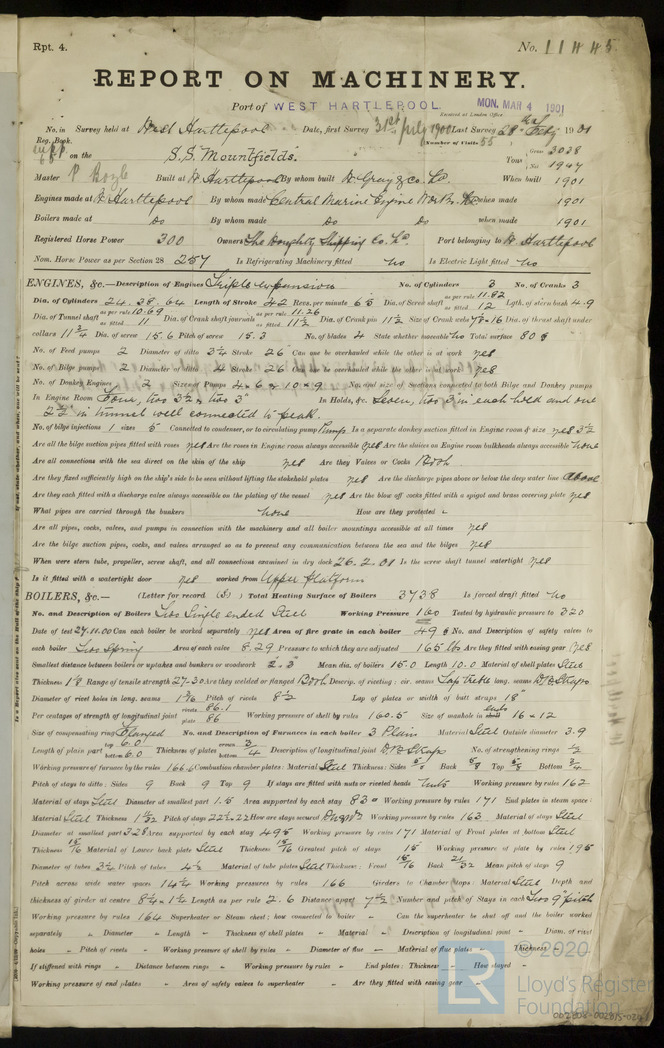 Rpt. 4.
No. 11445
REPORT ON MACHINERY.
Port of WEST HARTLEPOOL
MON. MAR 4 1901
Received at London Office
No. in Survey held at West Hartlepool Date, first Survey 31st July 1900 Last Survey 28th Feby 1901
Reg. Book.
(Number of Visits 55
on the S.S. "Mountfields". Tons Gross 3038
Net 1947
Master P Boyle Built at W. Hartlepool By whom built W. Gray & Co. Ld. When built 1901
Engines made at W. Hartlepool By whom made Central Marine Engine Works Ld when made 1901
Boilers made at Do By whom made Do Do when made 1901
Registered Horse Power 300 Owners The Doughty Shipping Co. Ld. Port belonging to W Hartlepool
Nom. Horse Power as per Section 28 257 Is Refrigerating Machinery fitted no Is Electric Light fitted no
ENGINES, &c.—Description of Engines Triple expansion No. of Cylinders 3 No. of Cranks 3
Dia. of Cylinders 24. 38. 64 Length of Stroke 42 Revs. per minute 65 Dia. of Screw shaft as per rule 11.82 as fitted 12 Lgth. of stern bush 4.9
Dia. of Tunnel shaft as per rule 10.69 as fitted 11 Dia. of Crank shaft journals as per rule 11.26 as fitted 11½ Dia. of Crank pin 11½ Size of Crank webs 7½ × 16 Dia. of thrust shaft under
collars 11¾ Dia. of screw 15.6 Pitch of screw 15.3 No. of blades 4 State whether moveable no Total surface 80
No. of Feed pumps 2 Diameter of ditto 3¼ Stroke 26" Can one be overhauled while the other is at work yes
No. of Bilge pumps 2 Diameter of ditto 4 Stroke 26" Can one be overhauled while the other is at work yes
No. of Donkey Engines 2 Sizes of Pumps 4 × 6 & 10 × 9 No. and size of Suctions connected to both Bilge and Donkey pumps
In Engine Room Four, two 3½ two 3" In Holds, &c. Seven, two 3 in each hold and one
2½ in tunnel well connected to peak.
No. of bilge injections 1 sizes 5 Connected to condenser, or to circulating pump Pump Is a separate donkey suction fitted in Engine room & size yes 3½
Are all the bilge suction pipes fitted with roses yes Are the roses in Engine room always accessible yes Are the sluices on Engine room bulkheads always accessible none
Are all connections with the sea direct on the skin of the ship yes Are they Valves or Cocks Both
Are they fixed sufficiently high on the ship's side to be seen without lifting the stokehold plates yes Are the discharge pipes above or below the deep water line above
Are they each fitted with a discharge valve always accessible on the plating of the vessel yes Are the blow off cocks fitted with a spigot and brass covering plate yes
What pipes are carried through the bunkers none How are they protected -
Are all pipes, cocks, valves, and pumps in connection with the machinery and all boiler mountings accessible at all times yes
Are the bilge suction pipes, cocks, and valves arranged so as to prevent any communication between the sea and the bilges yes
When were stern tube, propeller, screw shaft, and all connections examined in dry dock 26.2.01 Is the screw shaft tunnel watertight yes
Is it fitted with a watertight door yes worked from Upper Platform
BOILERS, &c.— (Letter for record (S) ) Total Heating Surface of Boilers 3738 Is forced draft fitted no
No. and Description of Boilers Two Single ended Steel Working Pressure 160 Tested by hydraulic pressure to 320
Date of test 27.11.00 Can each boiler be worked separately yes Area of fire grate in each boiler 49 No. and Description of safety valves to
each boiler Two Spring Area of each valve 8.29 Pressure to which they are adjusted 165 lbs Are they fitted with easing gear yes
Smallest distance between boilers or uptakes and bunkers or woodwork 2'.3" Mean dia. of boilers 15.0 Length 10.0 Material of shell plates Steel
Thickness 1⅛ Range of tensile strength 27-30 Are they welded or flanged Both Descrip. of riveting: cir. seams Lap treble long. seams D.B. Straps
Diameter of rivet holes in long. seams 1 3/16 Pitch of rivets 8½ Lap of plates or width of butt straps 18"
Per centages of strength of longitudinal joint rivets 86.1 plate 86 Working pressure of shell by rules 160.5 Size of manhole in ends 16 × 12
Size of compensating ring Flanged No. and Description of Furnaces in each boiler 3 Plain Material Steel Outside diameter 3.9
Length of plain part top 6.0 bottom 6.0 Thickness of plates crown bottom ¾ Description of longitudinal joint D.B. Strap No. of strengthening rings
Working pressure of furnace by the rules 166.6 Combustion chamber plates: Material Steel Thickness: Sides ⅝ Back ⅝ Top ⅝ Bottom ¾
Pitch of stays to ditto: Sides 9 Back 9 Top 9 If stays are fitted with nuts or riveted heads Nuts Working pressure by rules 162
Material of stays Steel Diameter at smallest part 1.5 Area supported by each stay 83 Working pressure by rules 171 End plates in steam space:
Material Steel Thickness 1 1/32 Pitch of stays 22½ × 22 How are stays secured Working pressure by rules 163 Material of stays Steel
Diameter at smallest part 3.28 Area supported by each stay 495 Working pressure by rules 171 Material of Front plates at bottom Steel
Thickness 15/16 Material of Lower back plate Steel Thickness 15/16 Greatest pitch of stays 15 Working pressure of plate by rules 195
Diameter of tubes 3¼ Pitch of tubes 4½ Material of tube plates Steel Thickness: Front 15/16 Back 21/32 Mean pitch of stays 9
Pitch across wide water spaces 14¼ Working pressures by rules 166 Girders to Chamber tops: Material Steel Depth and
thickness of girder at centre 8¼ × 1½ Length as per rule 2.6 Distance apart 7½ Number and pitch of Stays in each Two 9" pitch
Working pressure by rules 164 Superheater or Steam chest; how connected to boiler - Can the superheater be shut off and the boiler worked
separately - Diameter - Length - Thickness of shell plates - Material - Description of longitudinal joint - Diam. of rivet
holes - Pitch of rivets - Working pressure of shell by rules - Diameter of flue - Material of flue plates - Thickness
If stiffened with rings - Distance between rings - Working pressure by rules - End plates: Thickness - How stayed -
Working pressure of end plates - Area of safety valves to superheater - Are they fitted with easing gear
© 2020
Lloyd's Register
Foundation
002808-002815-0241